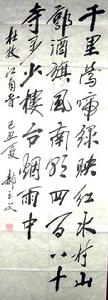 千里莺啼绿映红水村山
郭酒旗風南朝四百八十
寺多少楼台烟雨中
杜牧江南春 己丑夏